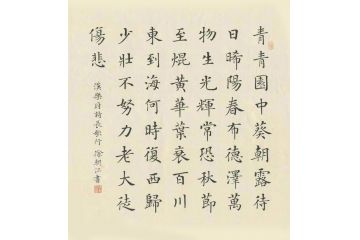 青青園中葵朝露待
日晞陽春布德澤萬
物生光輝常恐秋節
至焜黃華葉衰百川
東到海何時復西歸
少壯不努力老大徒
傷悲
漢樂府詩長歌行 徐朝江書